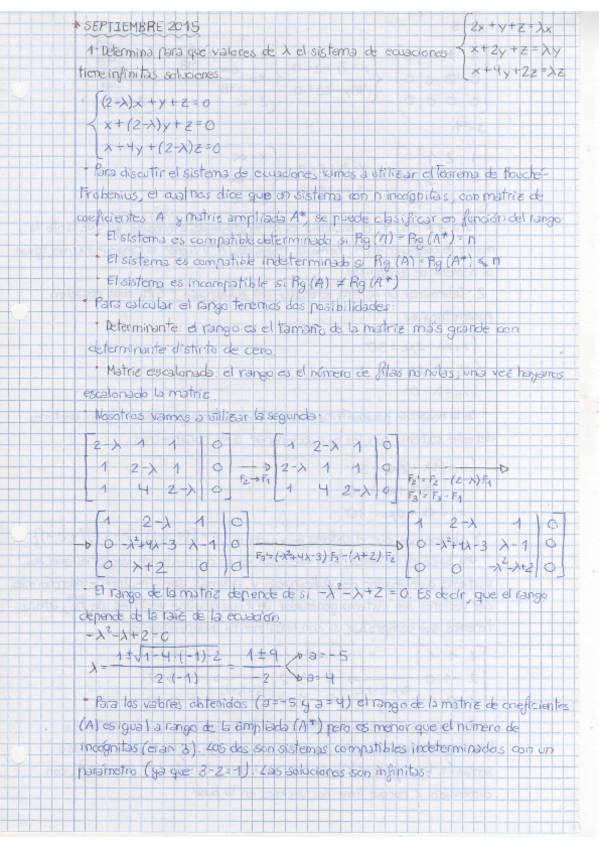 * SEPTIEMBRE 2015
1- Determina para que valores de λ el sistema de ecuaciones { 2x + y + z = λx
x + 2y + z = λy
x + 4y + 2z = λz
tiene infinitas soluciones.
{ (2-λ)x + y + z = 0
x + (2-λ)y + z = 0
x + 4y + (2-λ)z = 0
* Para discutir el sistema de ecuaciones, vamos a utilizar el Teorema de Rouché-
Frobenius, el cual nos dice que un sistema con n incógnitas, con matriz de
coeficientes A y matriz ampliada A*, se puede clasificar en función del rango:
* El sistema es compatible determinado si Rg(A) = Rg(A*) = n
* El sistema es compatible indeterminado si Rg(A) = Rg(A*) < n
* El sistema es incompatible si Rg(A) ≠ Rg(A*)
* Para calcular el rango tenemos dos posibilidades:
* Determinante: el rango es el tamaño de la matriz más grande con
determinante distinto de cero.
* Matriz escalonada: el rango es el número de filas no nulas, una vez hayamos
escalonado la matriz.
* Nosotros vamos a utilizar la segunda:
[2-λ 1 1 | 0] [1 2-λ 1 | 0]
[1 2-λ 1 | 0] → F2→F1 [2-λ 1 1 | 0] → F2'=F2-(2-λ)F1
[1 4 2-λ | 0] [1 4 2-λ | 0] F3'=F3-F1
[1 2-λ 1 | 0] [1 2-λ 1 | 0]
→ [0 -λ²+4λ-3 λ-1 | 0] → F3'=(-λ²+4λ-3)F3-(λ+2)F2 [0 -λ²+4λ-3 λ-1 | 0]
[0 λ+2 0 | 0] [0 0 -λ²-λ+2 | 0]
* El rango de la matriz depende de si -λ²-λ+2=0. Es decir, que el rango
depende de la raíz de la ecuación.
-λ²-λ+2=0
λ = 1±√1-4·(-1)·2 / 2·(-1) = 1±9 / -2 → a=-5
→ a=4
* Para los valores obtenidos (a=-5 y a=4) el rango de la matriz de coeficientes
(A) es igual a rango de la ampliada (A*) pero es menor que el número de
incógnitas (eran 3). Los dos son sistemas compatibles indeterminados con un
parámetro (ya que 3-2=1). Las soluciones son infinitas.